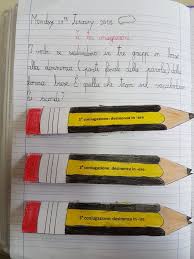 Monday January
Le tre coniugazioni
I verbi si suddividono in tre gruppi in base
alla desinenza (parte finale della parola) della
forma base. È quella che trovi nel vocabolario
ricordi?
coniugazione: desinenza in -are
coniugazione: desinenza in
coniugazione: desinenza in